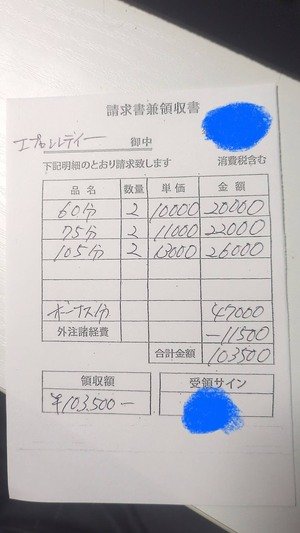 請求書兼領収書
エプロンレディー 御中
下記明細のとおり請求致します 消費税含む
品名 数量 単価 金額
60分 2 10000 20000
75分 2 11000 22000
105分 2 13000 26000
ボーナス分 47000
外注諸経費 -11500
合計金額 103500
領収額 受領サイン
¥103,500-